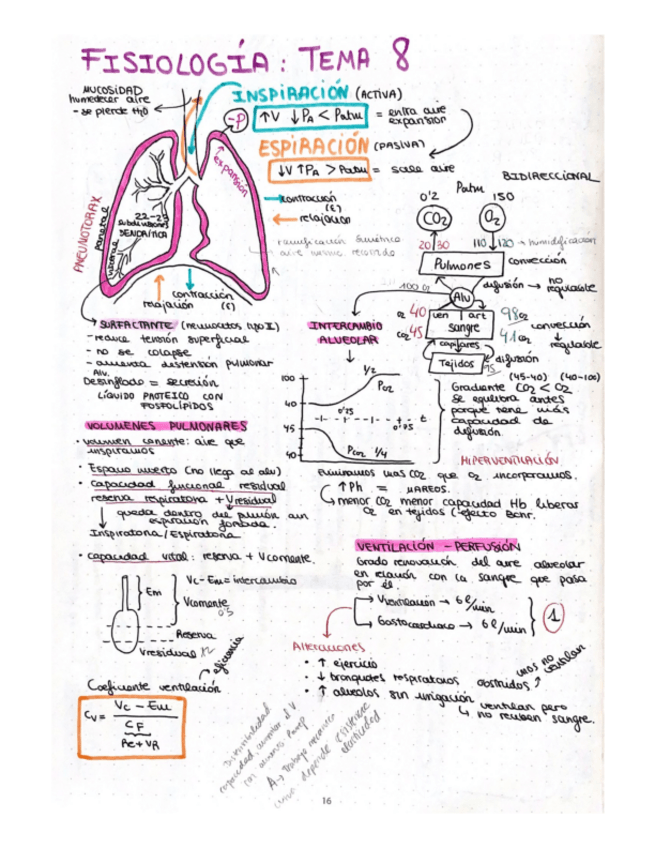 FISIOLOGÍA: TEMA 8
MUCOSIDAD
humedecer aire
- se pierde H2O
INSPIRACIÓN (ACTIVA)
-P
↑V ↓PA < Patm = entra aire
expansión
ESPIRACIÓN (PASIVA)
↓V ↑PA > Patm = sale aire
expansión
contracción
(E)
relajación
22-23
subdivisiones
DENDRÍTICA
PNEUMOTORAX
parietal
visceral
contracción
relajación (E)
ramificación simétrica
aire mismo recorrido
BIDIRECCIONAL
Patm
0'2 150
CO2 O2
20 30 110 120 → humidificación
Pulmones convección
difusión → no
regulable
100 O2
Alv
O2 40 ven art 98 O2
CO2 45 sangre 41 CO2
convección
↓
regulable
capilares
Tejidos difusión
(45-40) (40-100)
Gradiente CO2 < O2
se equilibra antes
porque tiene más
capacidad de
difusión.
SURFACTANTE (neumocitos tipo II)
- reduce tensión superficial
- no se colapse
- aumenta distensión pulmonar
Alv.
Desinflado = secreción
LÍQUIDO PROTEICO CON
FOSFOLÍPIDOS
INTERCAMBIO
ALVEOLAR
100
40
45
40
1/2
PO2
0'25
0'75
t
PCO2 1/4
VOLUMENES PULMONARES
• volumen corriente: aire que
inspiramos
• Espacio muerto (no llega al alv)
• capacidad funcional residual
reserva respiratoria + V residual
queda dentro del pulmón aun
espiración forzada.
Inspiratoria / Espiratoria
• capacidad vital: reserva + Vcorriente.
Em
Vc - Em = intercambio
Vcorriente
0'5
Reserva
Vresidual
eficiencia
Coeficiente ventilación
Cv = Vc - Em
CF
Re + VR
HIPERVENTILACIÓN
Eliminamos más CO2 que O2 incorporamos.
↑Ph = MAREOS.
menor CO2 menor capacidad Hb liberar
O2 en tejidos (efecto Bohr.
VENTILACIÓN - PERFUSIÓN
Grado renovación del aire alveolar
en relación con la sangre que pasa
por él.
Ventilación → 6 l/min
Gasto cardiaco → 6 l/min
1
Alteraciones
• ↑ ejercicio
• ↓ bronquios respiratorios obstruidos ↑ unos no ventilan
• ↑ alveolos sin irrigación
ventilan pero
no reciben sangre.
Distensibilidad
capacidad aumentar el V
con aumento
A → trabajo mecánico
depende
elasticidad
16